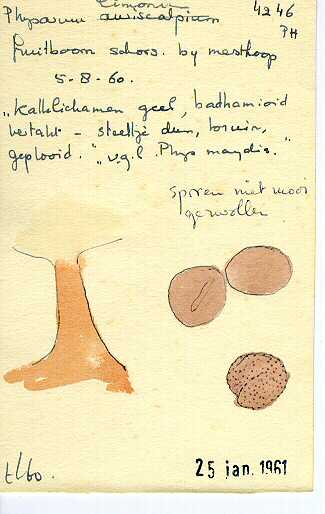 Limonium
Physarum auriscalpium 4246
PH
fruitboom schors. by mesthoop
5-8-60.
"Kalklichamen geel, badhamioid
vertakt - steeltje dun, bruin,
geplooid." "v.g.l. Phys maydis."
sporen niet mooi
gezwollen
25 jan. 1961